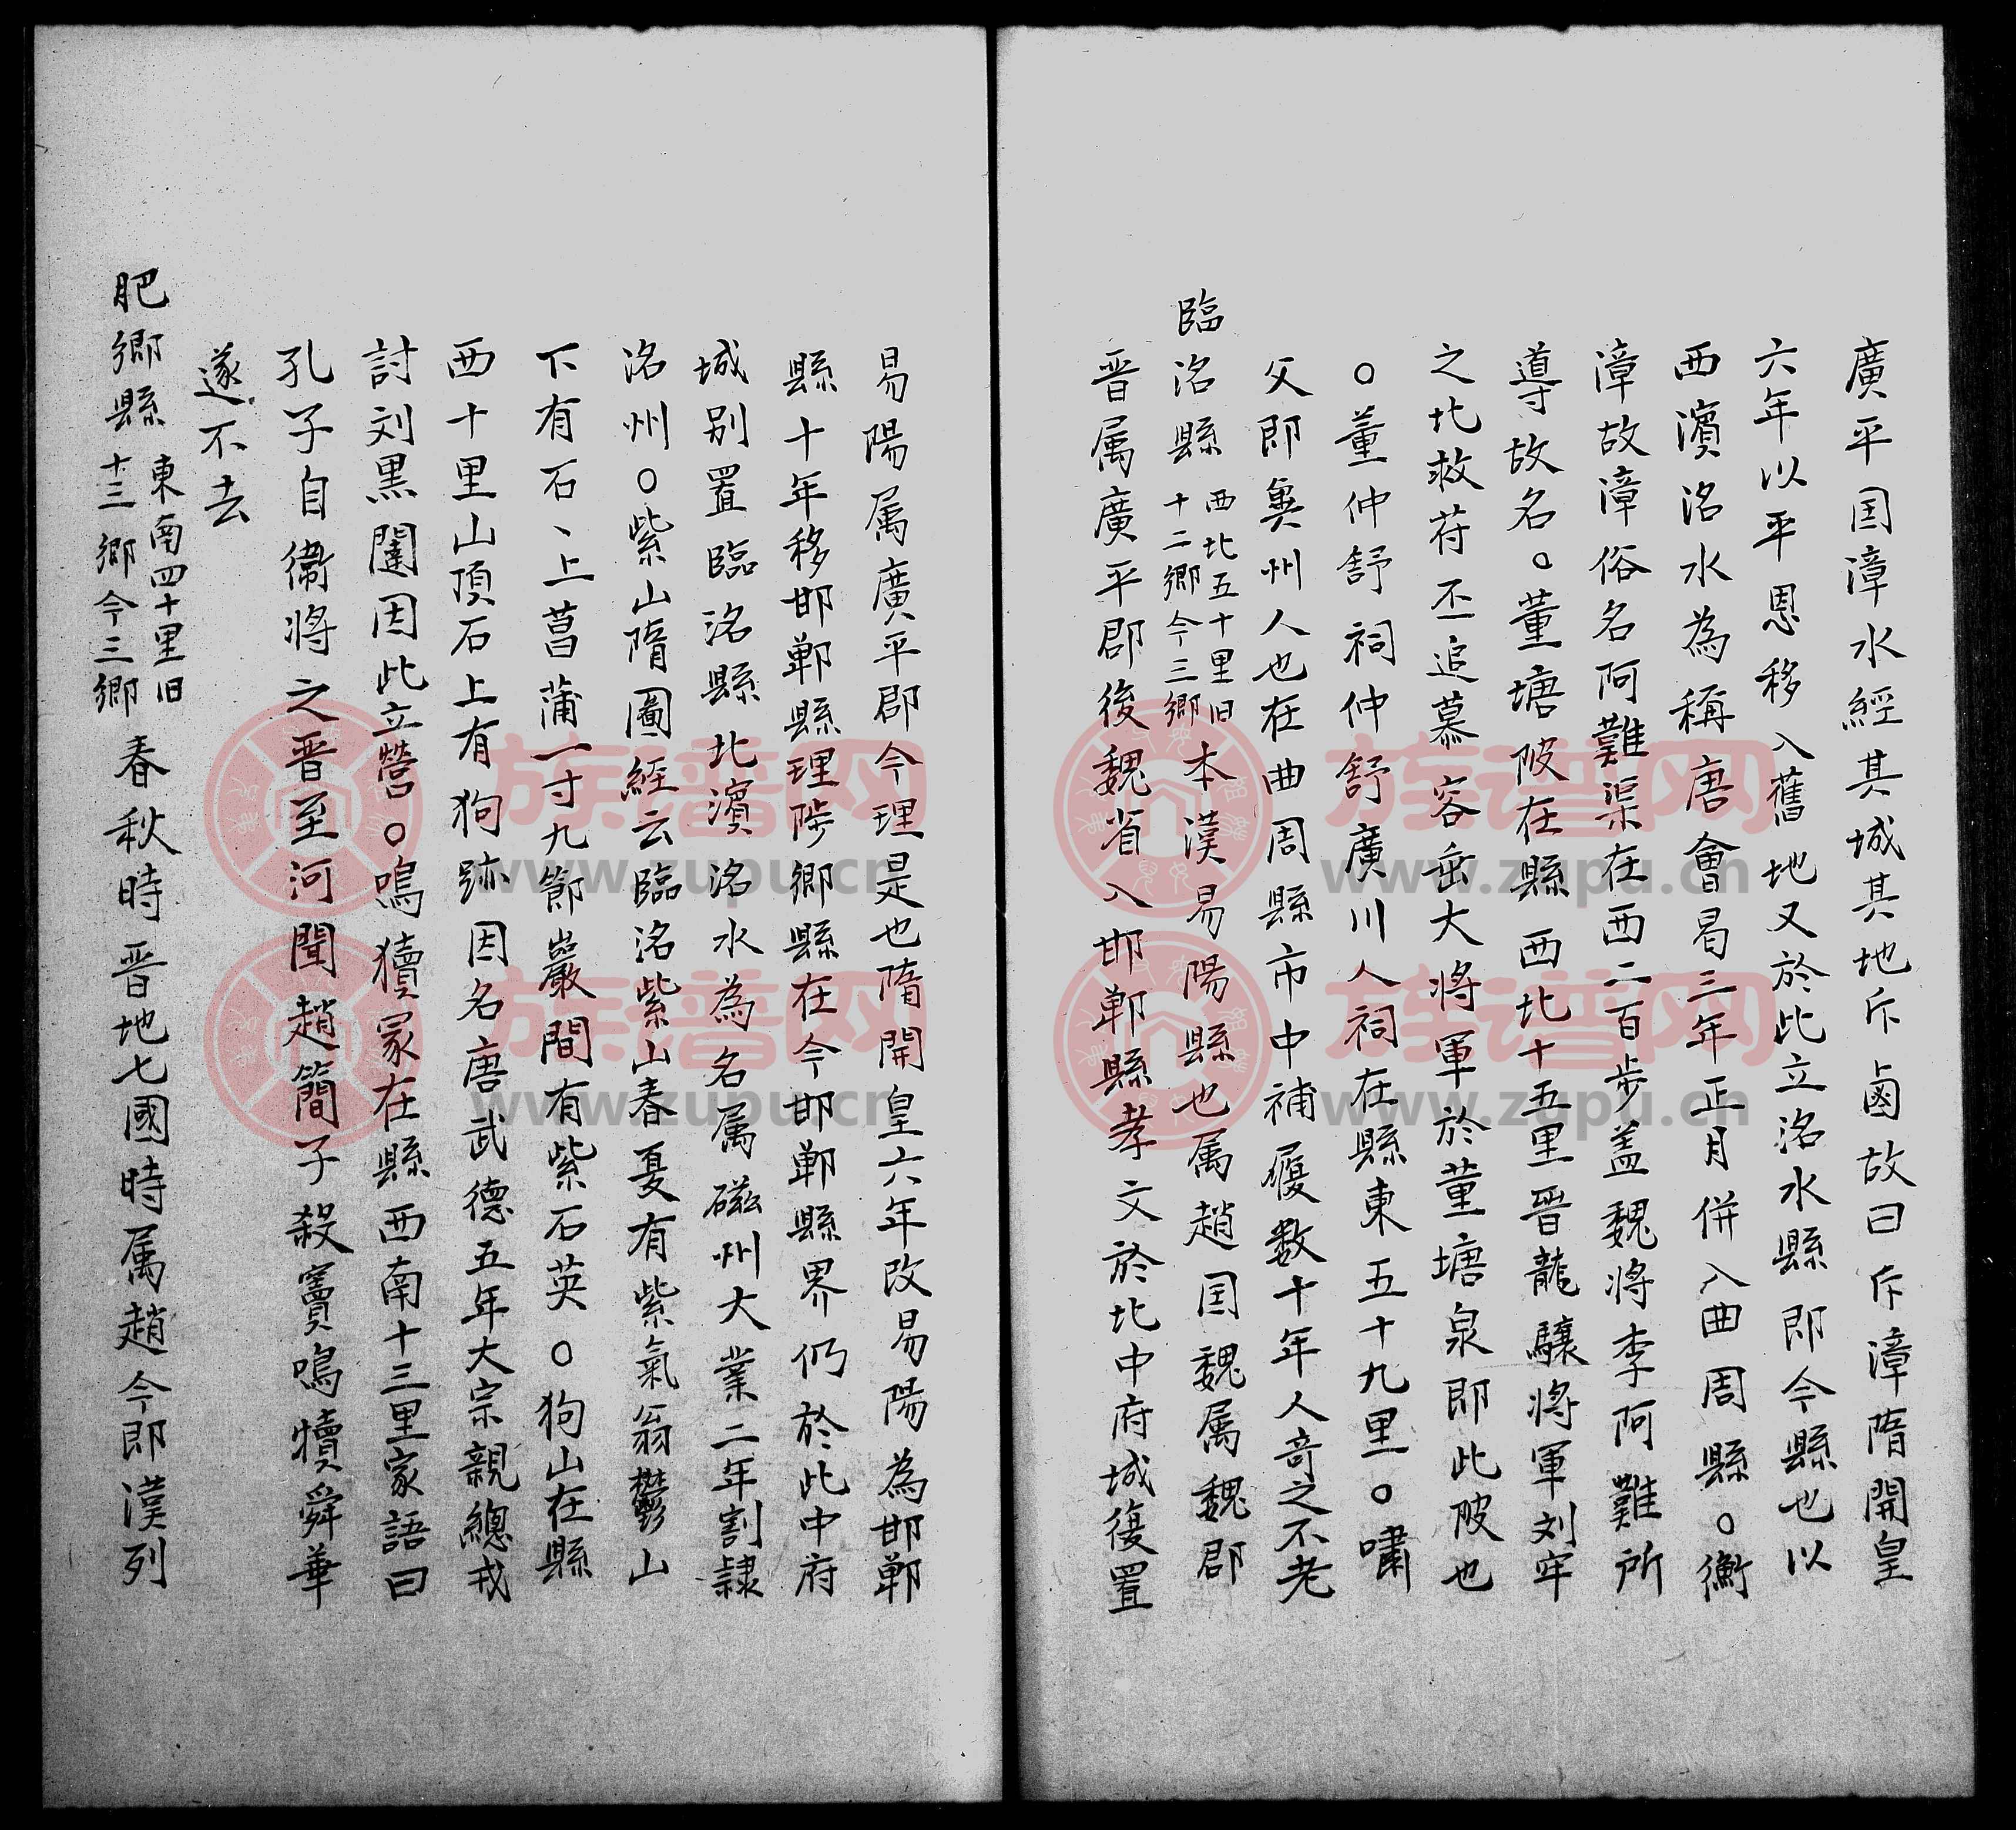 廣平国漳水經其城其地斥鹵故曰斥漳隋開皇
六年以平恩移入舊地又於此立洺水縣即今縣也以
西濱洺水為稱唐會昌三年正月併入曲周縣○衡
漳故漳俗名阿難渠在西二百步盖魏將李阿難所
導故名○董塘陂在縣西北十五里晋龍驤將軍刘牢
之北救苻丕追慕容垂大將軍於董塘泉即此陂也
○董仲舒祠仲舒廣川人祠在縣東五十九里○嘯
父即兾州人也在曲周縣市中補履数十年人奇之不老
臨洺縣 西北五十里旧十二鄉今三鄉 本漢易陽縣也属趙国魏属魏郡
晋属廣平郡後魏省入邯鄲縣孝文於北中府城復置
易陽属廣平郡今理是也隋開皇六年改易陽為邯鄲
縣十年移邯鄲縣理陟鄉縣在今邯鄲縣界仍於此中府
城别置臨洺縣北濱洺水為名属磁州大業二年割隸
洺州○紫山隋圖經云臨洺紫山春夏有紫氣翁鬱山
下有石丶上菖蒲一寸九節巖間有紫石英○狗山在縣
西十里山頂石上有狗跡因名唐武德五年大宗親總戎
討刘黒闥因此立營○鳴犢冢在縣西南十三里家語曰
孔子自衞將之晋至河聞趙簡子殺竇鳴犢舜華
遂不去
肥鄉縣 東南四十里旧十三鄉今三鄉 春秋時晋地七國時属趙今即漢列
族谱网
www.zupu.cn
族谱网
www.zupu.cn
族谱网
www.zupu.cn
族谱网
www.zupu.cn